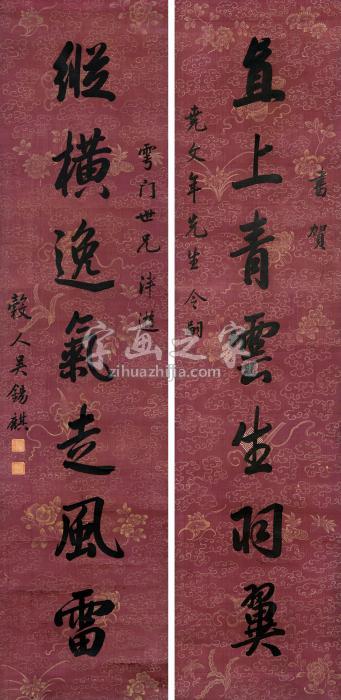 書賀
直上青雲生羽翼
堯文年先生令嗣
雩门世兄泮遊
縱橫逸氣走風雷
穀人吴錫麒
字画之家
zihuazhijia.com